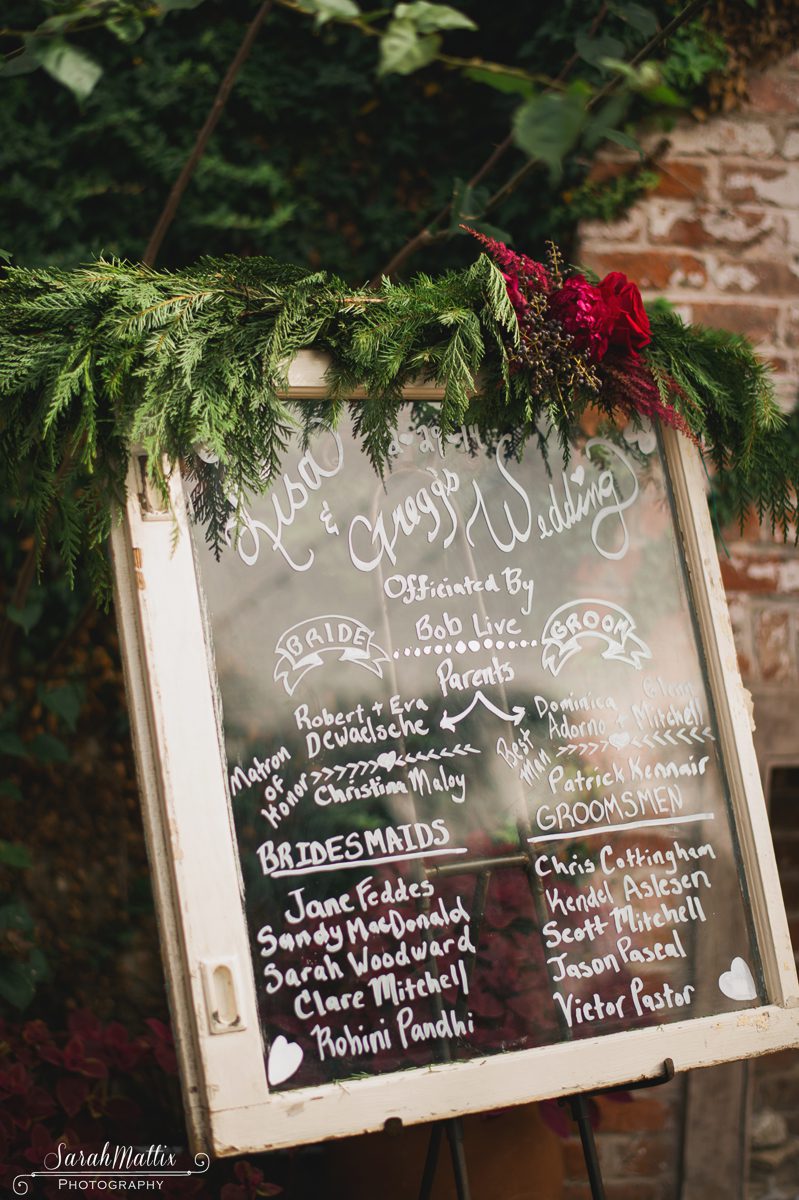 Lisa & Gregg's Wedding
Officiated By
Bob Live
BRIDE
GROOM
Parents
Robert + Eva
Dewaelsche
Dominica Glenn
Adorno + Mitchell
Matron
of
Honor
Christina Maloy
Best
Man
Patrick Kennair
BRIDESMAIDS
Jane Feddes
Sandy MacDonald
Sarah Woodward
Clare Mitchell
Rohini Pandhi
GROOMSMEN
Chris Cottingham
Kendel Aslesen
Scott Mitchell
Jason Pascal
Victor Pastor
SarahMattix
Photography